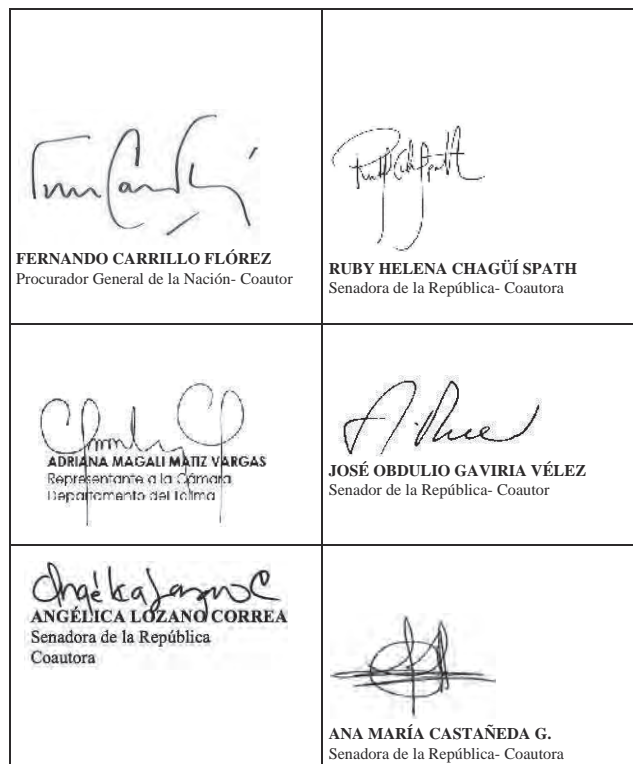 FERNANDO CARRILLO FLÓREZ
Procurador General de la Nación- Coautor
RUBY HELENA CHAGÜÍ SPATH
Senadora de la República- Coautora
ADRIANA MAGALI MATIZ VARGAS
Representante a la Cámara
Departamento del Tolima
JOSÉ OBDULIO GAVIRIA VÉLEZ
Senador de la República- Coautor
Angélica Lozano C
ANGÉLICA LOZANO CORREA
Senadora de la República
Coautora
ANA MARÍA CASTAÑEDA G.
Senadora de la República- Coautora